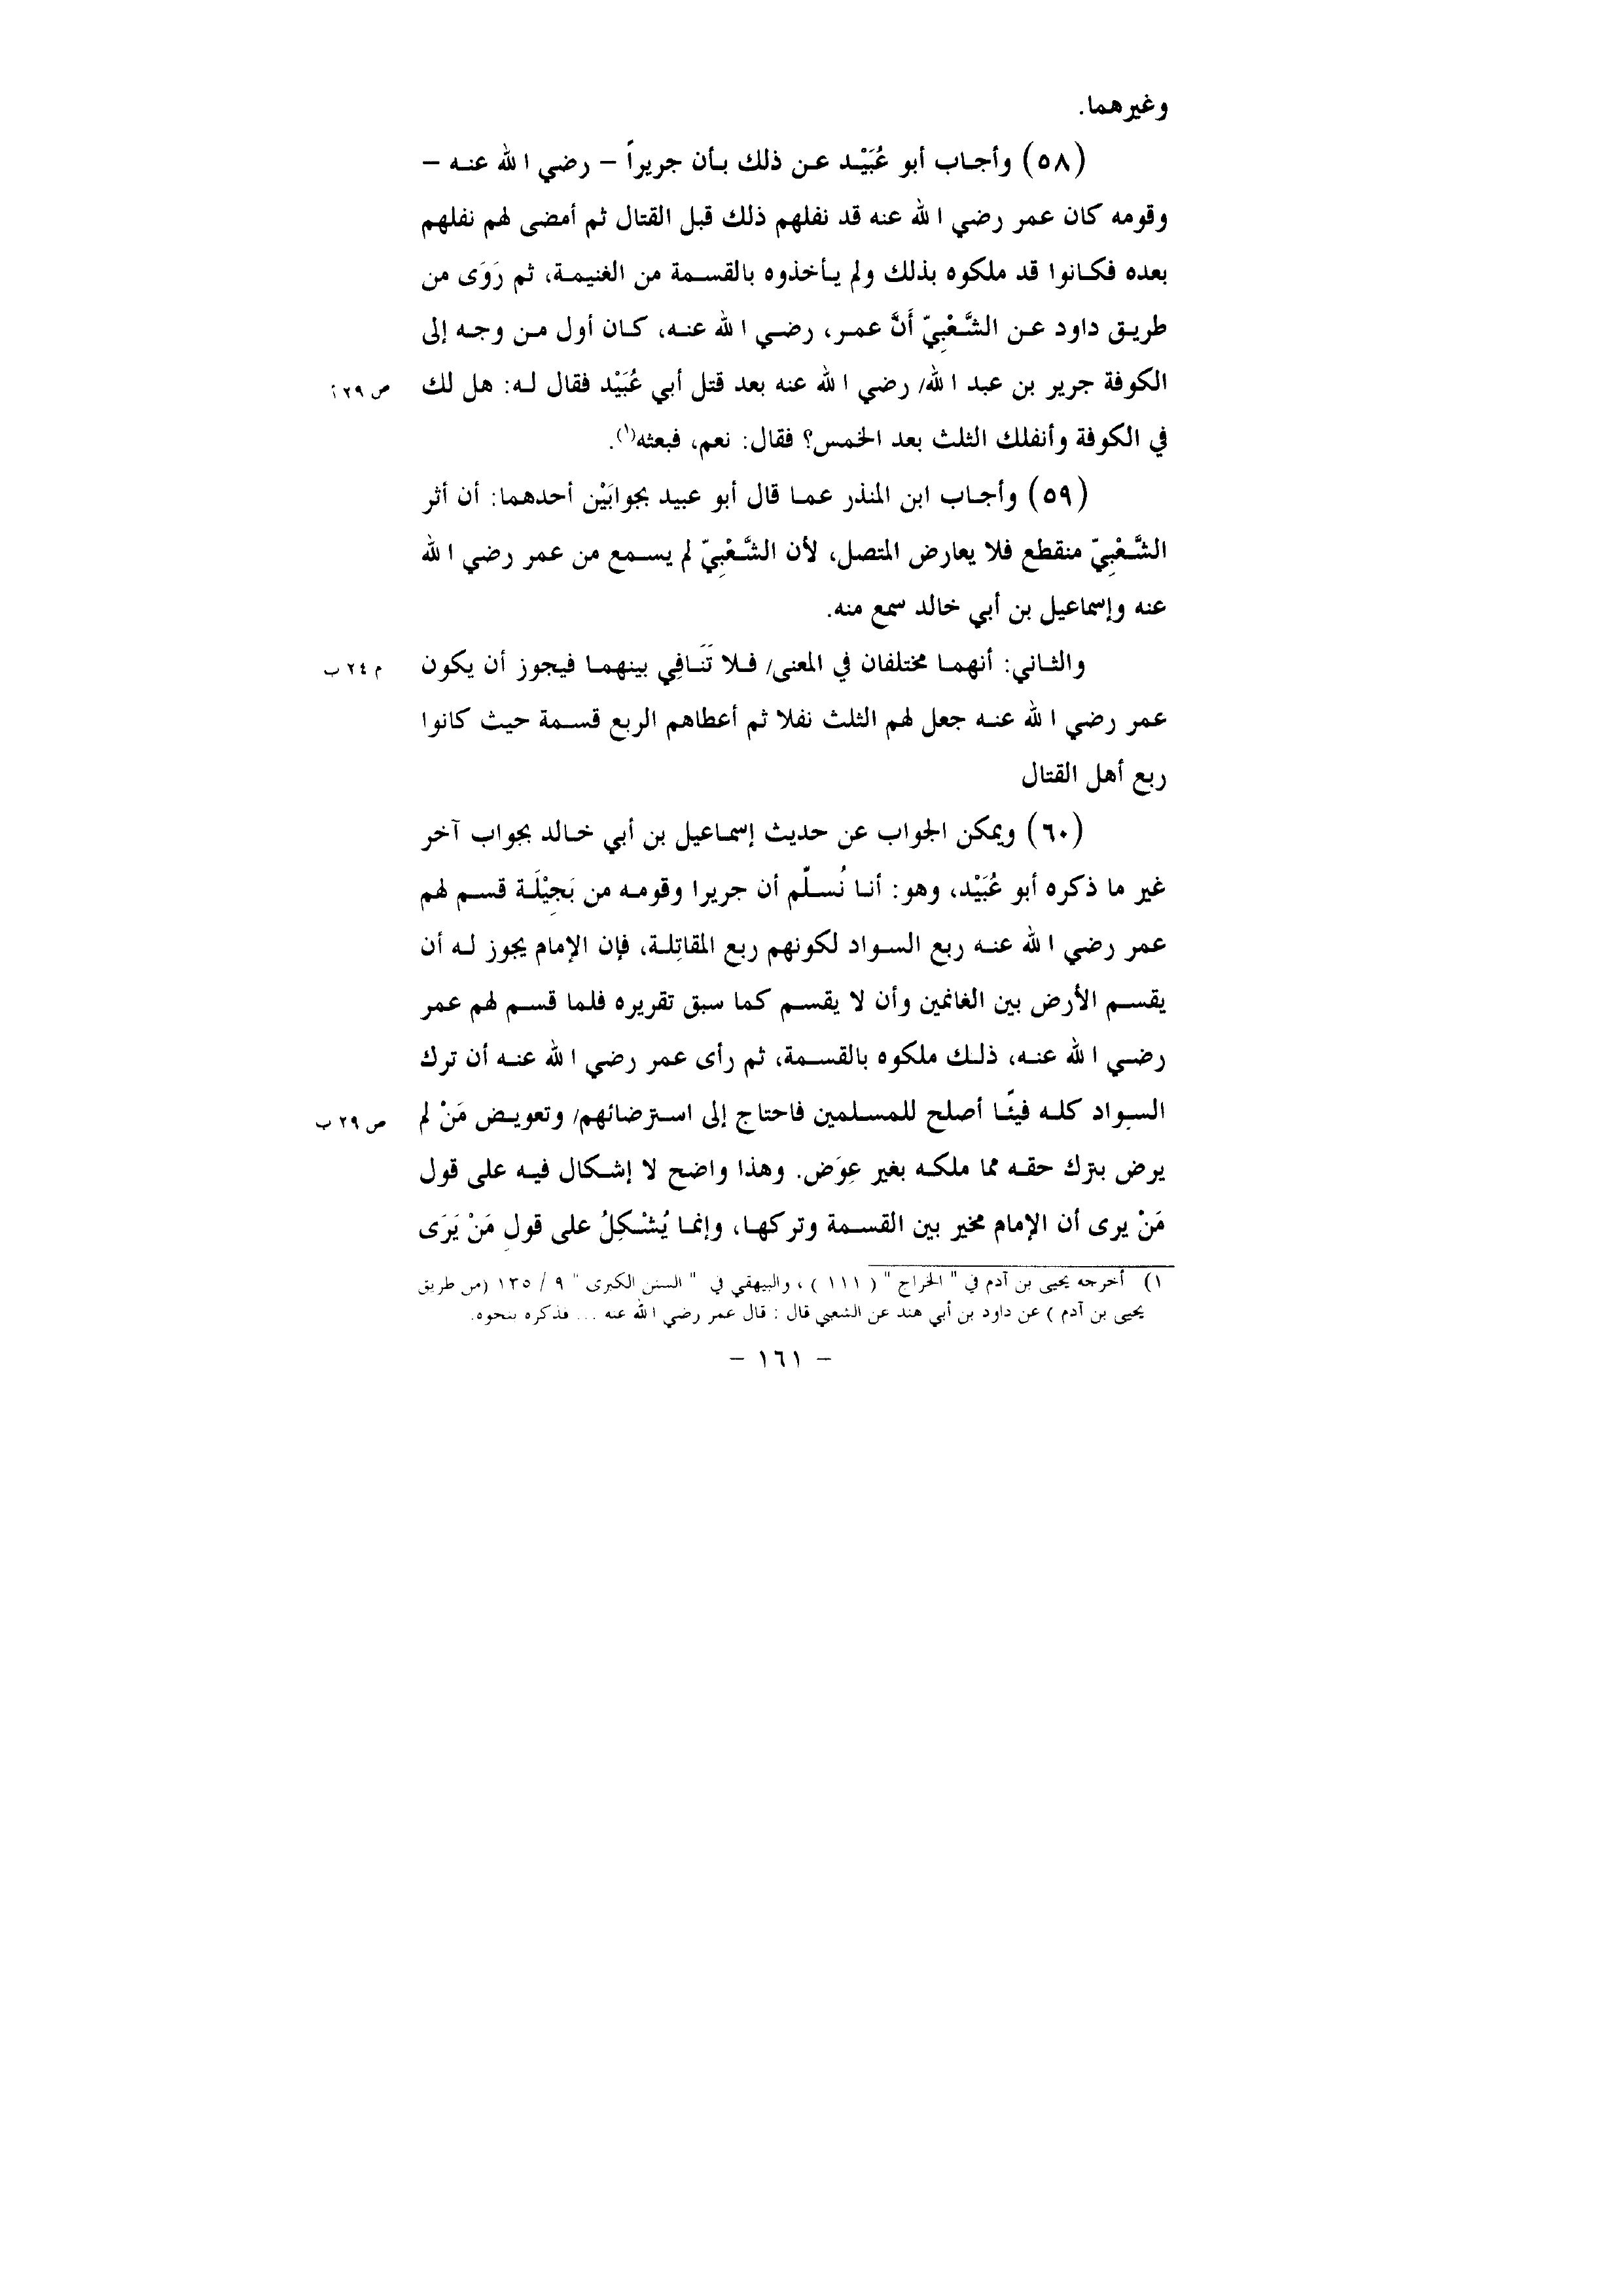 وغيرهما.
(٥٨) وأجاب أبو عُبَيْد عن ذلك بأن جريراً – رضي الله عنه –
وقومه كان عمر رضي الله عنه قد نفلهم ذلك قبل القتال ثم أمضى لهم نفلهم
بعده فكانوا قد ملكوه بذلك ولم يأخذوه بالقسمة من الغنيمة، ثم رَوَى من
طريق داود عن الشَّعْبِيّ أَنَّ عمر، رضي الله عنه، كان أول من وجه إلى
الكوفة جرير بن عبد الله/ رضي الله عنه بعد قتل أبي عُبَيْد فقال له: هل لك ص ٢٩ أ
في الكوفة وأنفلك الثلث بعد الخمس؟ فقال: نعم، فبعثه(١).
(٥٩) وأجاب ابن المنذر عما قال أبو عبيد بجوابَيْن أحدهما: أن أثر
الشَّعْبِيّ منقطع فلا يعارض المتصل، لأن الشَّعْبِيّ لم يسمع من عمر رضي الله
عنه وإسماعيل بن أبي خالد سمع منه.
والثاني: أنهما مختلفان في المعنى/ فلا تَنَافِي بينهما فيجوز أن يكون م ٢٤ ب
عمر رضي الله عنه جعل لهم الثلث نفلا ثم أعطاهم الربع قسمة حيث كانوا
ربع أهل القتال
(٦٠) ويمكن الجواب عن حديث إسماعيل بن أبي خالد بجواب آخر
غير ما ذكره أبو عُبَيْد، وهو: أنا نُسلّم أن جريرا وقومه من بَجِيْلَة قسم لهم
عمر رضي الله عنه ربع السواد لكونهم ربع المقاتِلة، فإن الإمام يجوز له أن
يقسم الأرض بين الغانمين وأن لا يقسم كما سبق تقريره فلما قسم لهم عمر
رضي الله عنه، ذلك ملكوه بالقسمة، ثم رأى عمر رضي الله عنه أن ترك
السواد كله فيئًا أصلح للمسلمين فاحتاج إلى استرضائهم/ وتعويض مَنْ لم ص ٢٩ ب
يرض بترك حقه مما ملكه بغير عِوَض. وهذا واضح لا إشكال فيه على قول
مَنْ يرى أن الإمام مخير بين القسمة وتركها، وإنما يُشْكِلُ على قولِ مَنْ يَرَى
١) أخرجه يحيى بن آدم في " الخراج " ( ١١١ ) ، والبيهقي في " السنن الكبرى " ٩ / ١٣٥ (من طريق
يحيى بن آدم ) عن داود بن أبي هند عن الشعبي قال : قال عمر رضي الله عنه ... فذكره بنحوه.
– ١٦١ –